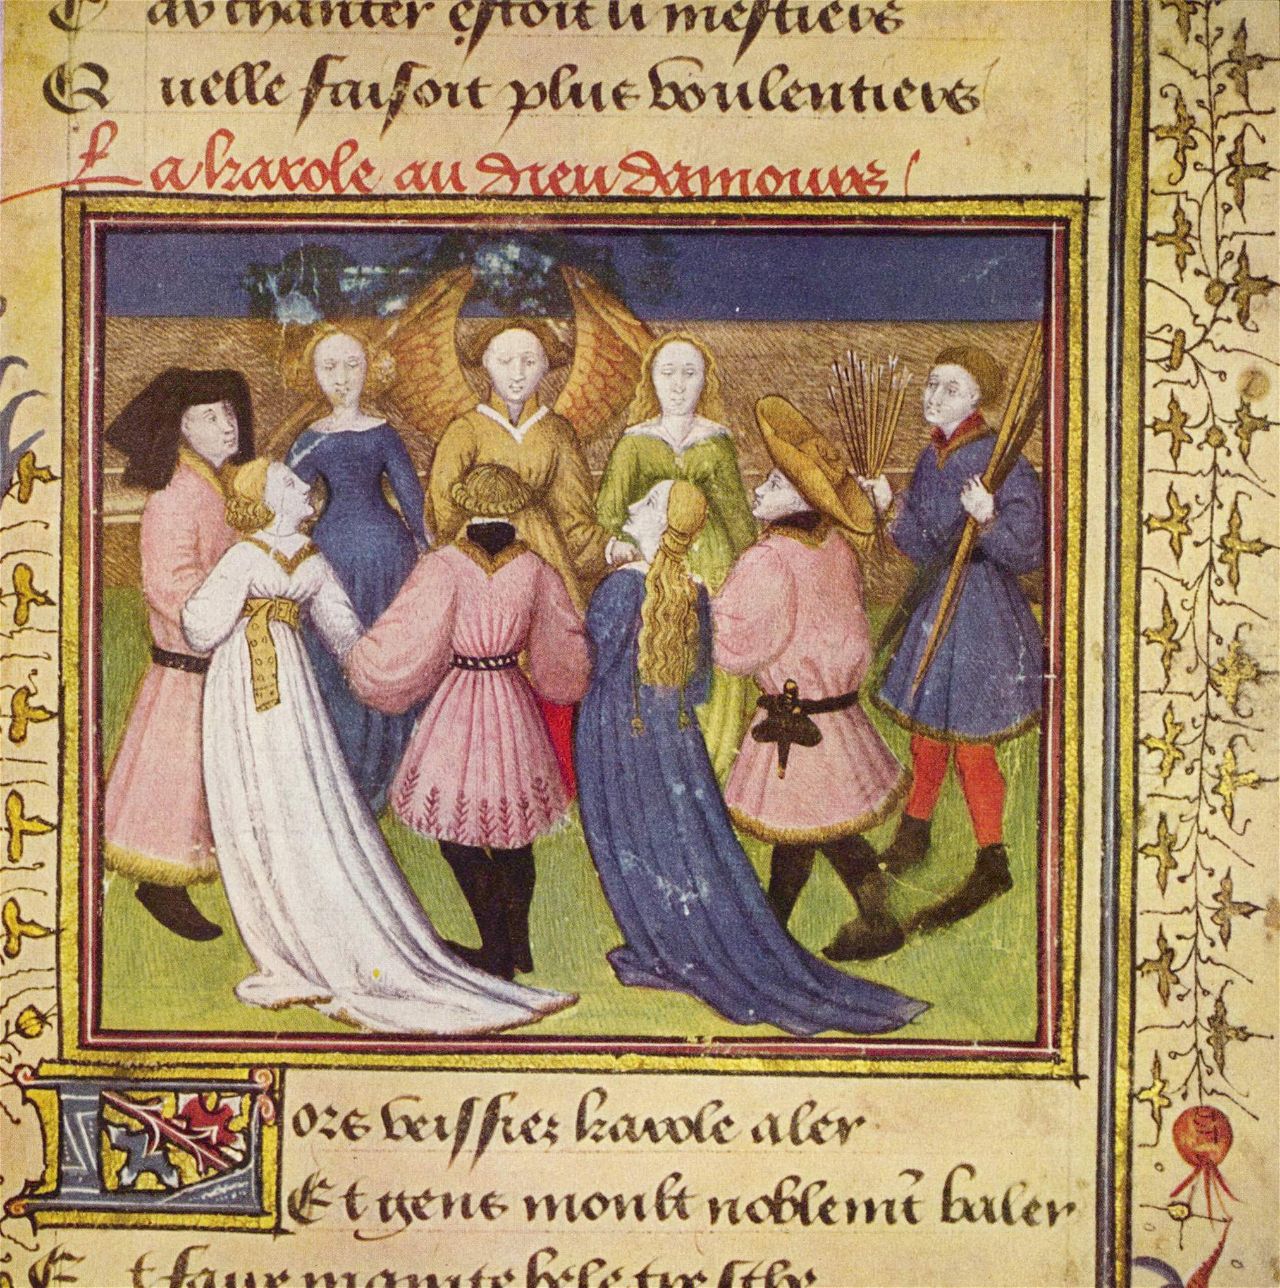 C ar chanter estoit li mestiers
Quelle faisoit plus voulentiers
La karole au dieu damours
Lors veissiez karole aler
Et gens moult noblemt baler
E t faire mainte bele tresche